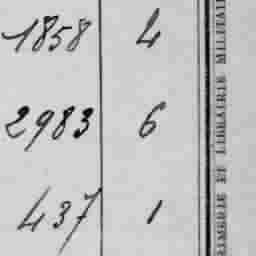 1858 4
2983 6
437 1
RIMERIE ET LIBRAIRIE MILITAI